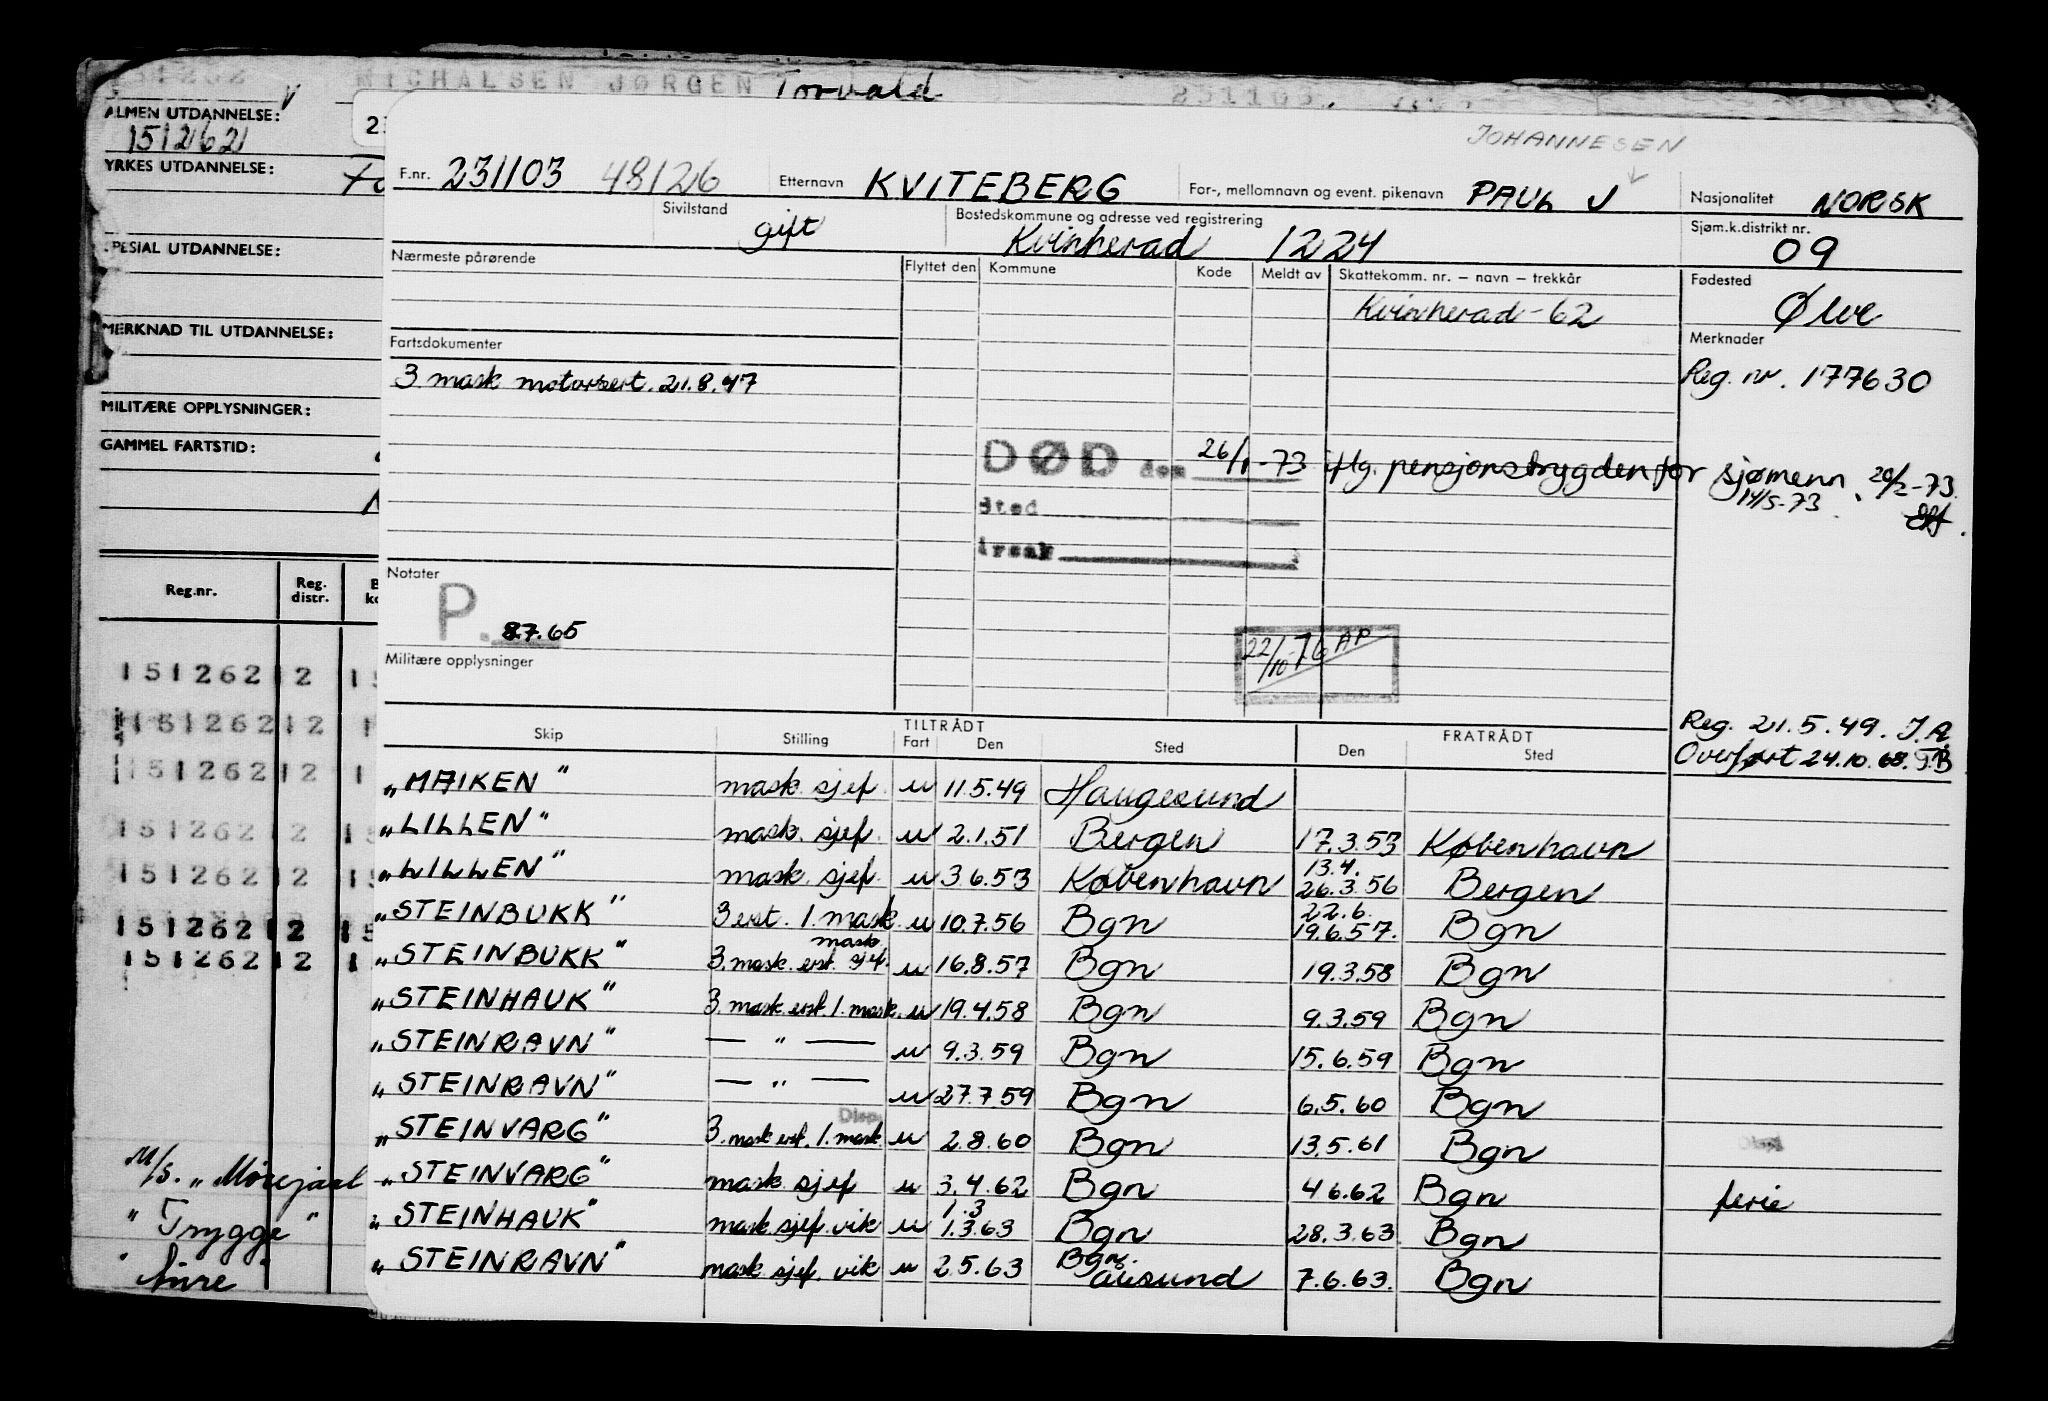 MICHALSEN JØRGEN Torvald 251103
ALMEN UTDANNELSE:
151262
YRKES UTDANNELSE:
SPESIAL UTDANNELSE:
MERKNAD TIL UTDANNELSE:
MILITÆRE OPPLYSNINGER:
GAMMEL FARTSTID:
Reg.nr. Reg. distr.
151262 12
151262 12
151262 12
151262 12
151262 12
151262 12
151262 12
" Trygge "
JOHANNESEN
F.nr. 231103 48126 Etternavn KVITEBERG For-, mellomnavn og event. pikenavn PAUL J Nasjonalitet NORSK
Sivilstand gift Bostedskommune og adresse ved registrering Kvinherad 1224 Sjøm.k.distrikt nr. 09
Nærmeste pårørende Flyttet den Kommune Kode Meldt av Skattekomm. nr. – navn – trekkår Fødested
Kvinherad - 62 Ølve
Fartsdokumenter Merknader
3. mask motorsert. 21.8.47 Reg. nr. 177630
DØD den 26/1-73 iflg. pensjonstrygden for sjømenn. 20/2-73.
Sted 14/5-73
Årsak
Notater
P. 8.7.65
22/10-76 AP
Militære opplysninger
Reg. 21.5.49. J.A.
Overført 24.10.68. T.B
TILTRÅDT FRATRÅDT
Skip Stilling Fart Den Sted Den Sted
"MAIKEN" mask sjef u 11.5.49 Haugesund
"LILLEN" mask. sjef. u 2.1.51 Bergen 17.3.53 København
"LILLEN" mask. sjef u 3.6.53 København 13.4. 26.3.56 Bergen
"STEINBUKK" 3 est. 1. mask. u 10.7.56 Bgn 22.6. 19.6.57. Bgn
"STEINBUKK" 3. mask. erst. mask. sjef. u 16.8.57 Bgn 19.3.58 Bgn
"STEINHAUK" 3. mask. erst. 1. mask. u 19.4.58 Bgn 9.3.59 Bgn
"STEINRAVN" — " — u 9.3.59 Bgn 15.6.59 Bgn
"STEINRAVN" — " — u 27.7.59 Bgn 6.5.60 Bgn
Disp.
"STEINVARG" 3. mask. erst. 1. mask. u 2.8.60 Bgn 13.5.61 Bgn
"STEINVARG" mask. sjef u 3.4.62 Bgn 4.6.62 Bgn ferie
"STEINHAUK" mask. sjef. vik u 1.3 1.3.63 Bgn 28.3.63 Bgn
"STEINRAVN" mask. sjef. vik u 2.5.63 Bgn. Ålesund 7.6.63. Bgn